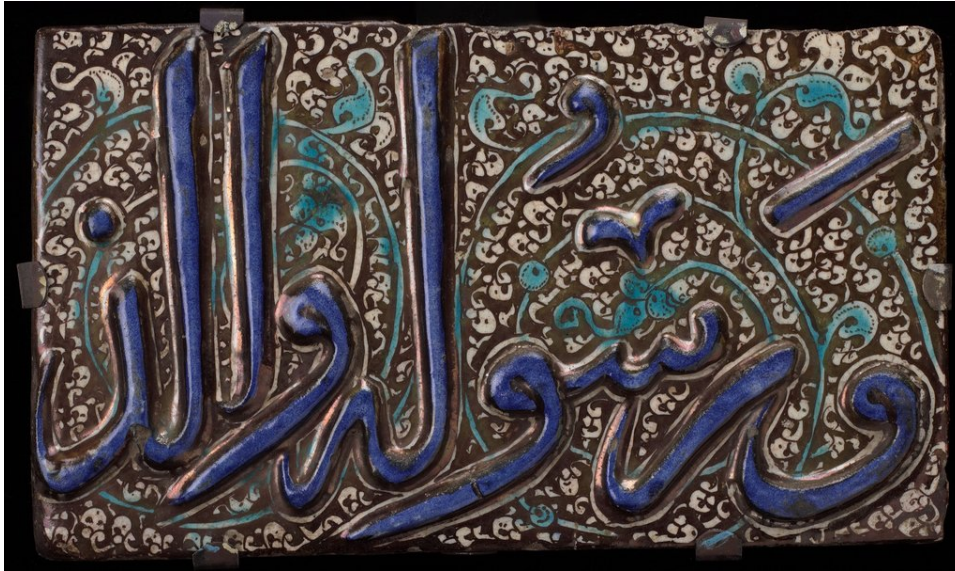 وَرَسُولُهُ وَالذ